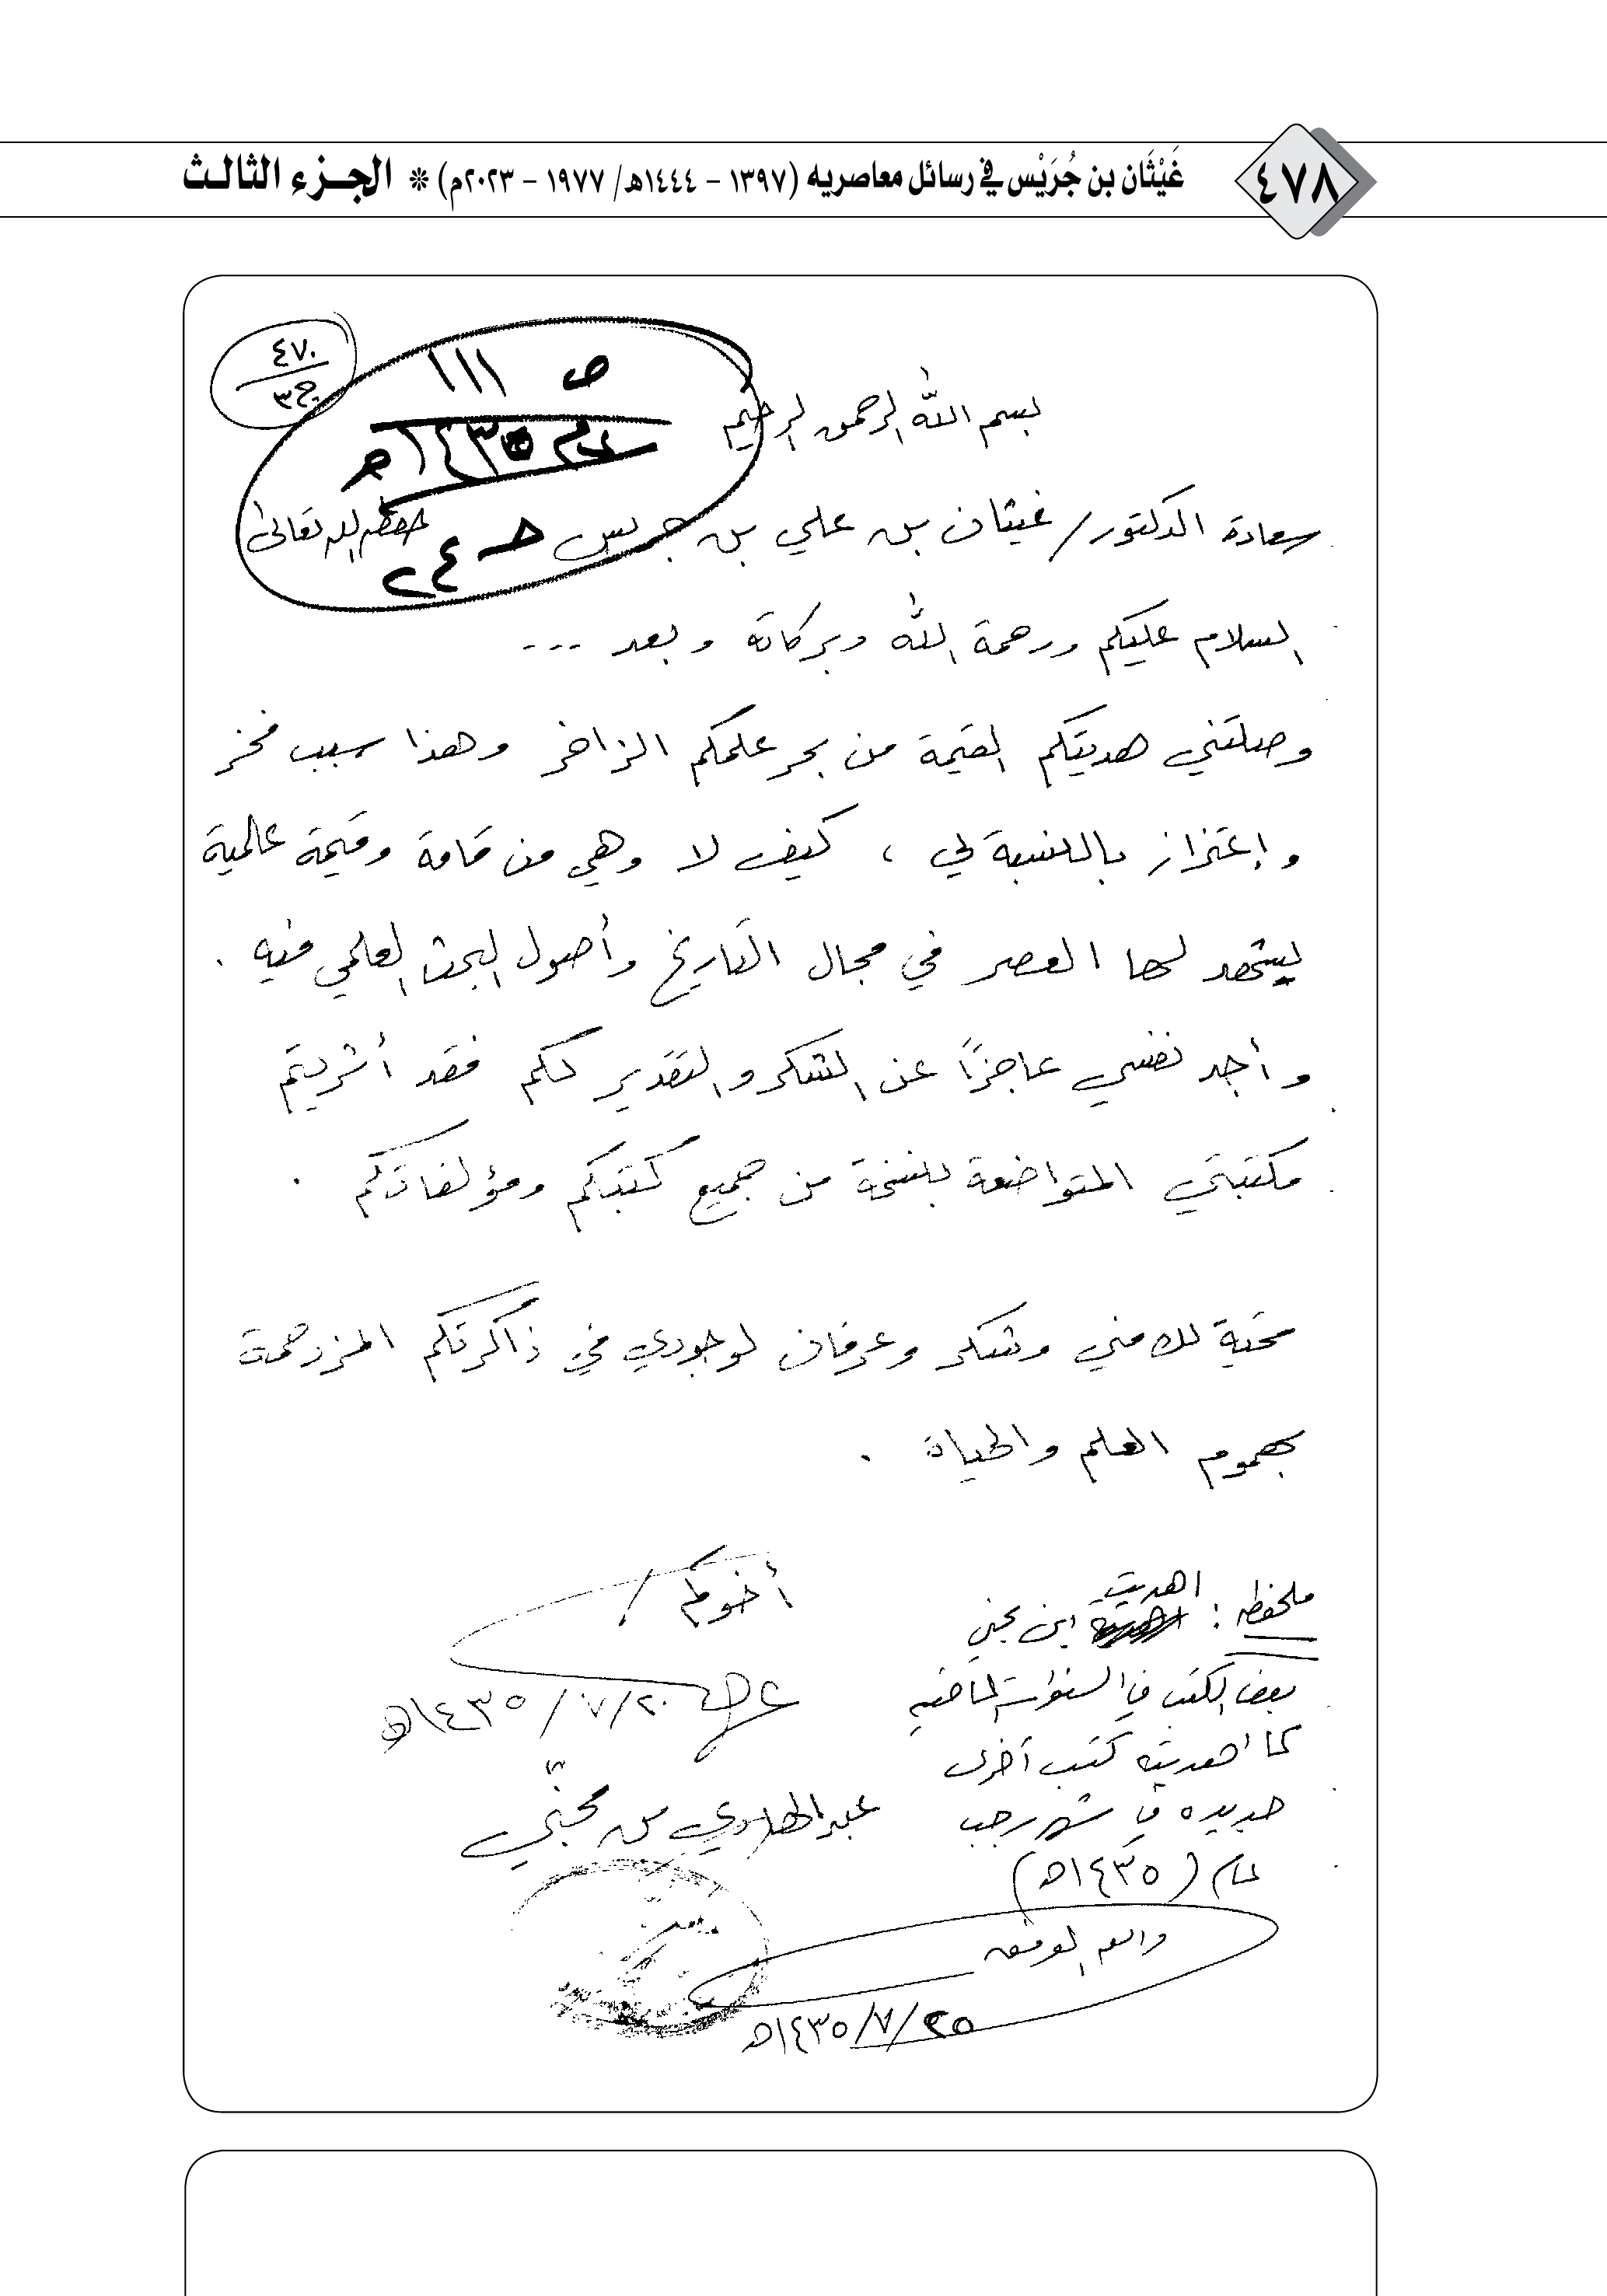 ٤٧٨
غَيْثَان بن جُرَيْس في رسائل معاصريه (١٣٩٧ - ١٤٤٤هـ/ ١٩٧٧ - ٢٠٢٣م) * الجـزء الثالـث
٤٧٠
ج٣
ص ١١١
عام ١٤٣٥هـ
حـ ٢٤
بسم الله الرحمن الرحيم
سعادة الدكتور/ غيثان بن علي بن جريس حفظه الله تعالى
السلام عليكم ورحمة الله وبركاته وبعد ...
وصلتني هديتكم القيمة من بحر علمكم الزاخر وهذا سبب فخر
وإعتزاز بالنسبة لي ، كيف لا وهي من قامة وقيمة عالمية
يشهد لها العصر في مجال التاريخ وأصول البحث العلمي فيه .
وأجد نفسي عاجزًا عن الشكر والتقدير لكم فقد أثريتم
مكتبتي المتواضعة بنسخة من جميع كتبكم ومؤلفاتكم .
تحية لك مني وشكر وعرفان لوجودي في ذاكرتكم المزدحمة
بهموم العلم والحياة .
أخوكم /
٢٠/٧/١٤٣٥هـ
عبدالهادي بن مجنّي
ملحظه : اهديت ابن مجني
بعض الكتب في السنوات الماضيه
كما اهديته كتب أخرى
جديده في شهر رجب
عام (١٤٣٥هـ)
والله الموفق
٢٥/٧/١٤٣٥هـ